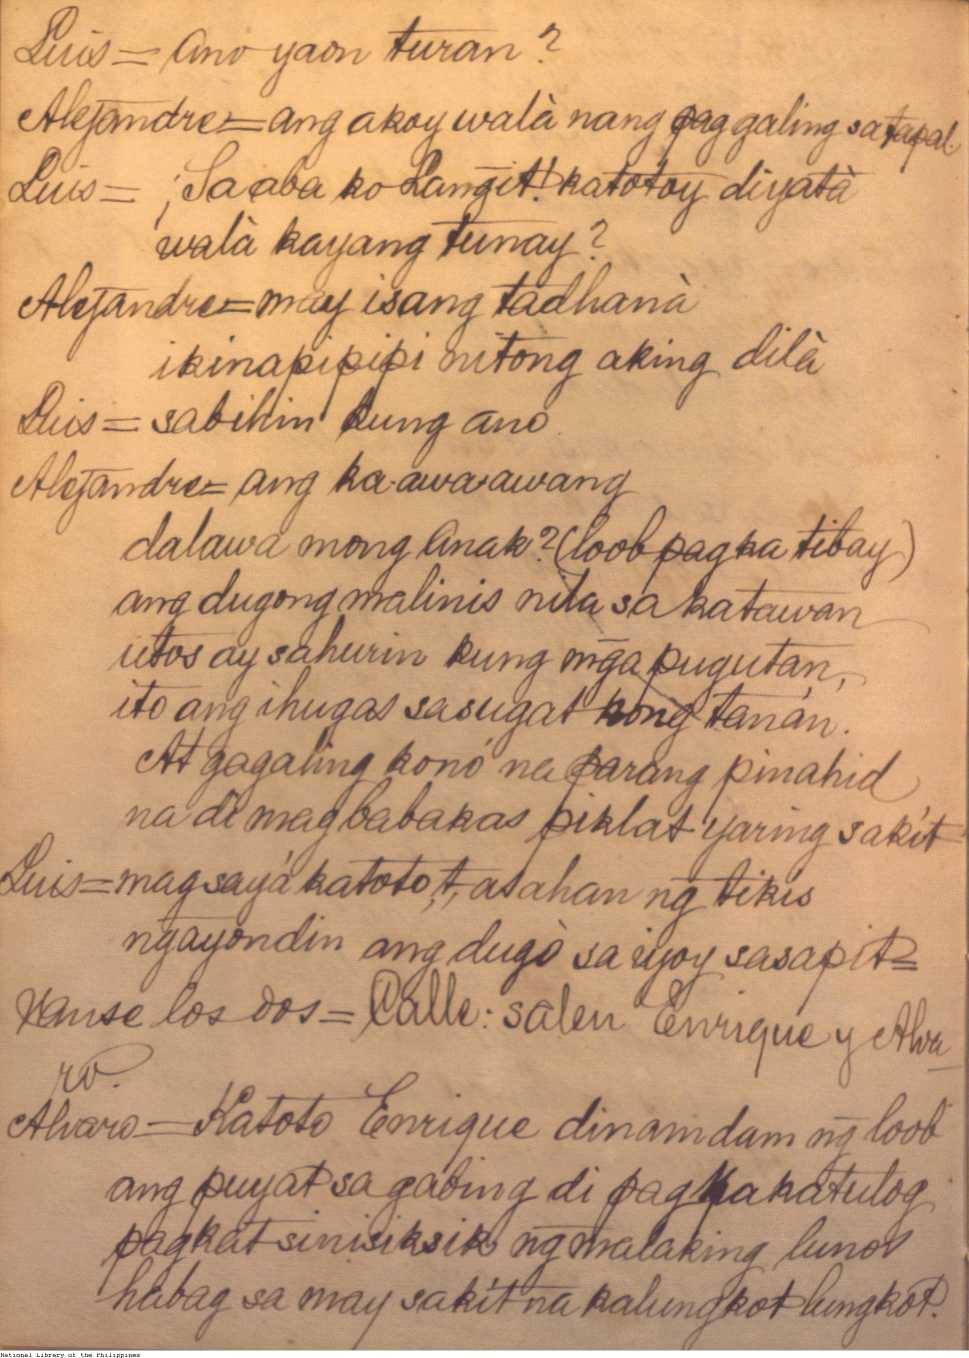 Luis = Ano yaon turan?
Alejandre = ang akoy walà nang pag galing sa tapal.
Luis = ¡Sa aba ko Langit! katotoy diyatà
walà kayang tunay?
Alejandre = may isang tadhanà
ikinapipipi nitong aking dilà
Luis = sabihin kung ano
Alejandre = ang ka-awa-awang
dalawa mong Anak? (loob pagka tibay)
ang dugong malinis nila sa katawan
utos ay sahurin kung mg̃a pugutan,
ito ang ihugas sa sugat kong tanán.
At gagaling konó na parang pinahid
na di magbabakas piklat yaring sakít
Luis = magsayá katoto,t, asahan ng̃ tikis
ng̃ayondin ang dugò sa iyoy sasapit =
Vanse los dos = Calle: salen Enrique y Alva
ro.
Alvaro = Katoto Enrique dinamdam ng̃ loob
ang puyat sa gabing di pagkakatulog
pagkat sinisiksik ng̃ malaking lunos
habag sa may sakít na kalungkot lungkot.
National Library of the Philippines